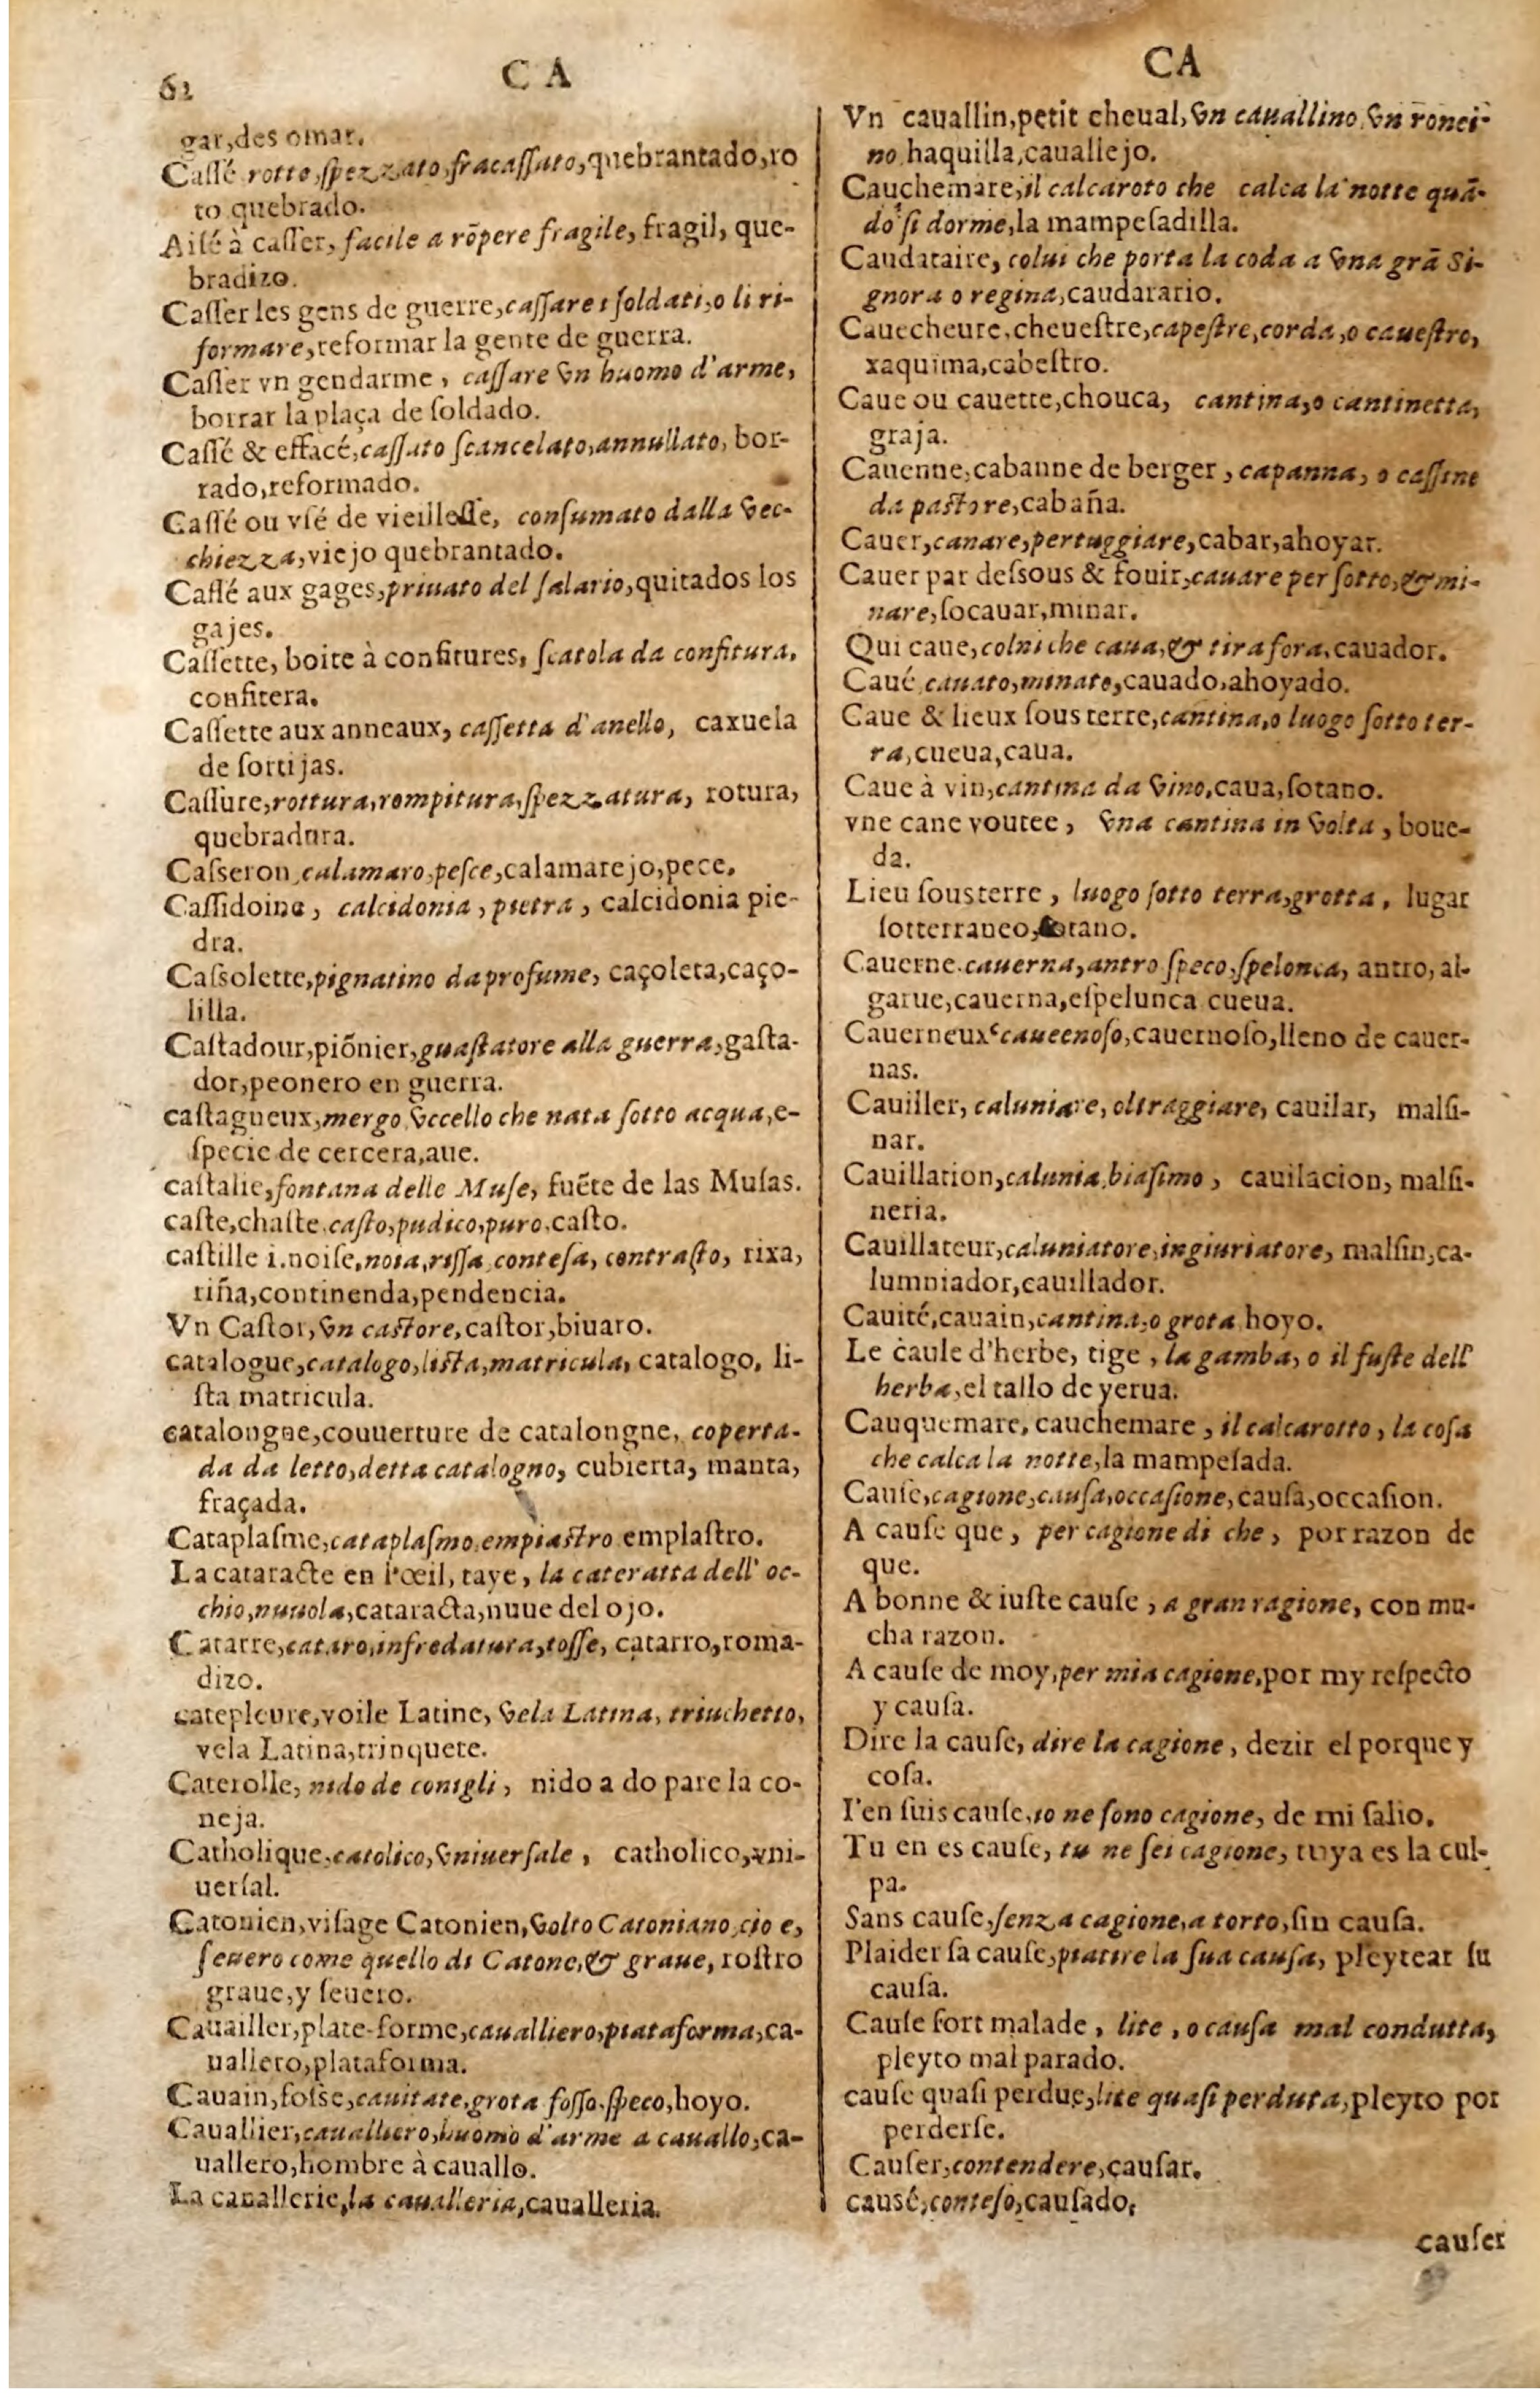 62
C A
gar,des omar.
Caſſé rotto,ſpezzato,fracaſſato,quebrantado,ro
to quebrado.
Aiſé à caſſer, facile a rõpere fragile, fragil, que-
bradizo.
Caſſer les gens de guerre,caſſare i ſoldati,o li ri-
formare,reformar la gente de guerra.
Caſſer vn gendarme, caſſare vn huomo d'arme,
borrar la plaça de ſoldado.
Caſſé & effacé,caſſato ſcancelato,annullato, bor-
rado,reformado.
Caſſé ou vſé de vieilleſſe, conſumato dalla vec-
chiezza,viejo quebrantado.
Caſſé aux gages,priuato del ſalario,quitados los
gajes.
Caſſette, boite à confitures, ſcatola da confitura,
confitera.
Caſſette aux anneaux, caſſetta d'anello, caxuela
de ſortijas.
Caſſure,rottura,rompitura,ſpezzatura, rotura,
quebradura.
Caſseron,calamaro,peſce,calamarejo,pece.
Caſſidoine, calcidonia, pietra, calcidonia pie-
dra.
Caſsolette,pignatino da profume, caçoleta,caço-
lilla.
Caſtadour,piõnier,guaſtatore alla guerra,gaſta-
dor,peonero en guerra.
caſtagneux,mergo vccello che nata ſotto acqua,e-
ſpecie de cercera,aue.
caſtalie,fontana delle Muſe, fuẽte de las Muſas.
caſte,chaſte.caſto,pudico,puro.caſto.
caſtille i.noiſe,noia,riſſa conteſa, contraſto, rixa,
riña,continenda,pendencia.
Vn Caſtor,vn caſtore,caſtor,biuaro.
catalogue,catalogo,liſta,matricula, catalogo, li-
ſta matricula.
catalongne,couuerture de catalongne, coperta-
da da letto,detta catalogno, cubierta, manta,
fraçada.
Cataplaſme,cataplaſmo,empiaſtro emplaſtro.
La cataracte en l'œil, taye, la cateratta dell' oc-
chio,nuuola,cataracta,nuue del ojo.
Catarre,cataro,infredatura,toſſe, catarro,roma-
dizo.
catepleure,voile Latine, vela Latina, triuchetto,
vela Latina,trinquete.
Caterolle, nido de conigli, nido a do pare la co-
neja.
Catholique,catolico,vniuerſale, catholico,vni-
uerſal.
Catonien,viſage Catonien,volto Catoniano,cio e,
ſeuero come quello di Catone,& graue, roſtro
graue,y ſeuero.
Cauailler,plate-forme,caualliero,piataforma,ca-
uallero,plataforma.
Cauain,foſse,cauitate,grota foſſo,ſpeco,hoyo.
Cauallier,caualliero,huomo d'arme a cauallo,ca-
uallero,hombre à cauallo.
La cauallerie,la caualleria,caualleria.
CA
Vn cauallin,petit cheual,vn cauallino,vn ronci-
no,haquilla,cauallejo.
Cauchemare,il calcaroto che calca la notte quã-
do ſi dorme,la mampeſadilla.
Caudataire, colui che porta la coda a vna grã Si-
gnora o regina,caudatario.
Cauecheure,cheueſtre,capeſtre,corda,o caueſtro,
xaquima,cabeſtro.
Caue ou cauette,chouca, cantina,o cantinetta,
graja.
Cauenne,cabanne de berger, capanna, o caſſine
da paſtore,cabaña.
Cauer,canare,pertuggiare,cabar,ahoyar.
Cauer par deſsous & fouir,cauare per ſotto,& mi-
nare,ſocauar,minar.
Qui caue,colni che caua,& tira fora,cauador.
Caué cauato,minato,cauado,ahoyado.
Caue & lieux ſous terre,cantina,o luogo ſotto ter-
ra,cueua,caua.
Caue à vin,cantina da vino,caua,ſotano.
vne cane voutee, vna cantina in volta, boue-
da.
Lieu ſousterre, luogo ſotto terra,grotta, lugar
ſotterraneo,ſotano.
Cauerne.cauerna,antro ſpeco,ſpelonca, antro, al-
garue,cauerna,eſpelunca cueua.
Cauerneux caueenoſo,cauernoſo,lleno de cauer-
nas.
Cauiller, caluniare, oltraggiare, cauilar, malſi-
nar.
Cauillation,calunia,biaſimo, cauilacion, malſi-
neria.
Cauillateur,caluniatore,ingiuriatore, malſin,ca-
lumniador,cauillador.
Cauité,cauain,cantina,o grota hoyo.
Le caule d'herbe, tige, la gamba, o il fuſte dell'
herba,el tallo de yerua.
Cauquemare, cauchemare, il calcarotto, la coſa
che calca la notte,la mampeſada.
Cauſe,cagione,cauſa,occaſione,cauſa,occaſion.
A cauſe que, per cagione di che, por razon de
que.
A bonne & iuſte cauſe, a gran ragione, con mu-
cha razon.
A cauſe de moy,per mia cagione,por my reſpecto
y cauſa.
Dire la cauſe, dire la cagione, dezir el porque y
coſa.
I'en ſuis cauſe,io ne ſono cagione, de mi ſalio.
Tu en es cauſe, tu ne ſei cagione, tuya es la cul-
pa.
Sans cauſe,ſenza cagione,a torto,ſin cauſa.
Plaider ſa cauſe,piatire la ſua cauſa, pleytear ſu
cauſa.
Cauſe fort malade, lite, o cauſa mal condutta,
pleyto mal parado.
cauſe quaſi perdue,lite quaſi perduta,pleyto por
perderſe.
Cauſer,contendere,cauſar.
causé,conteſo,cauſado,
cauſer